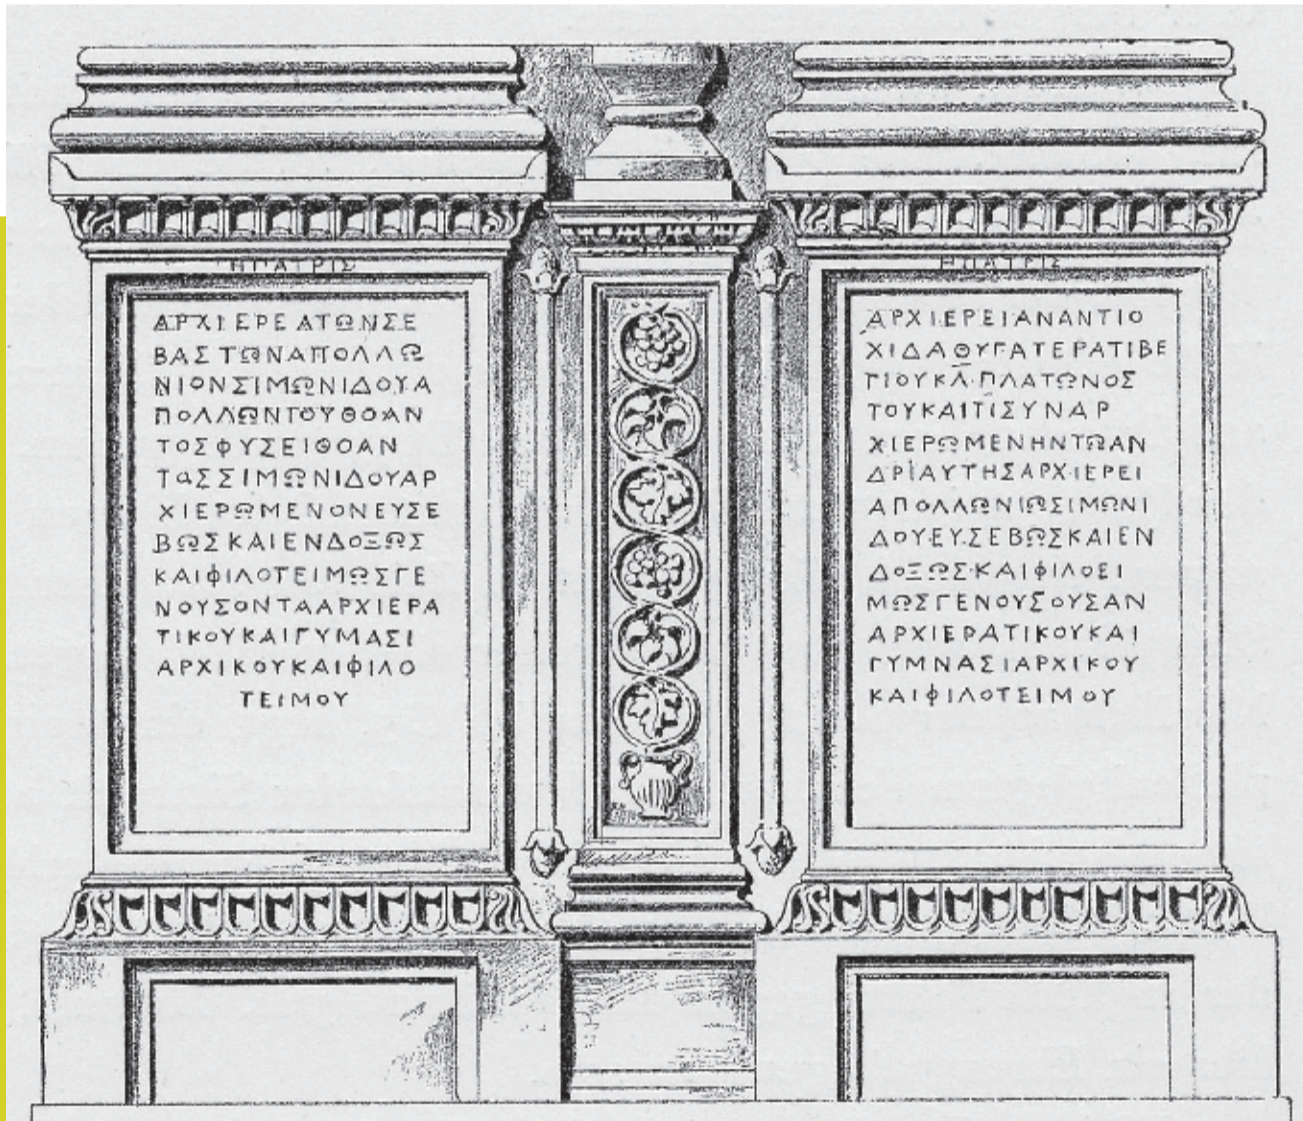 ΗΠΑΤΡΙΣ
ΑΡΧΙΕΡΕΑΤΩΝΣΕ
ΒΑΣΤΩΝΑΠΟΛΛΩ
ΝΙΟΝΣΙΜΩΝΙΔΟΥΑ
ΠΟΛΛΩΝΙΟΥΘΟΑΝ
ΤΟΣΦΥΣΕΙΘΟΑΝ
ΤΑΣΣΙΜΩΝΙΔΟΥΑΡ
ΧΙΕΡΩΜΕΝΟΝΕΥΣΕ
ΒΩΣΚΑΙΕΝΔΟΞΩΣ
ΚΑΙΦΙΛΟΤΕΙΜΩΣΓΕ
ΝΟΥΣΟΝΤΑΑΡΧΙΕΡΑ
ΤΙΚΟΥΚΑΙΓΥΜΑΣΙ
ΑΡΧΙΚΟΥΚΑΙΦΙΛΟ
ΤΕΙΜΟΥ
ΗΠΑΤΡΙΣ
ΑΡΧΙΕΡΕΙΑΝΑΝΤΙΟ
ΧΙΔΑΘΥΓΑΤΕΡΑΤΙΒΕ
ΓΙΟΥΚΛ·ΠΛΑΤΩΝΟΣ
ΤΟΥΚΑΙΤΙΣΥΝΑΡ
ΧΙΕΡΩΜΕΝΗΝΤΩΑΝ
ΔΡΙΑΥΤΗΣΑΡΧΙΕΡΕΙ
ΑΠΟΛΛΩΝΙΩΣΙΜΩΝΙ
ΔΟΥ·ΕΥ·ΣΕΒΩΣΚΑΙΕΝ
ΔΟΞΩΣ·ΚΑΙΦΙΛΟΕΙ
ΜΩΣΓΕΝΟΥΣΟΥΣΑΝ
ΑΡΧΙΕΡΑΤΙΚΟΥΚΑΙ
ΓΥΜΝΑΣΙΑΡΧΙΚΟΥ
ΚΑΙΦΙΛΟΤΕΙΜΟΥ